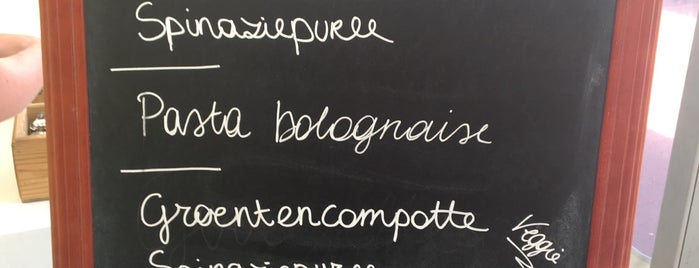 Spinaziepuree
Pasta bolognaise
Groentencompotte
Veggie
Spinaziepuree